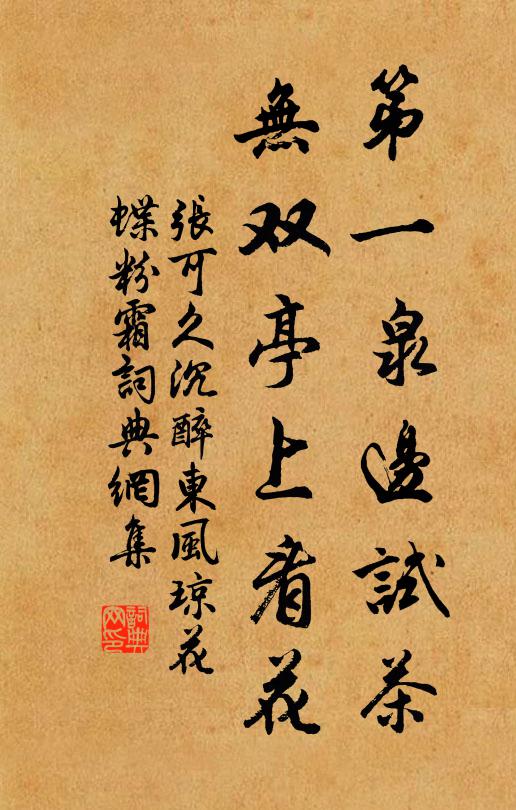 第一泉邊試茶
無双亭上看花
張可久沉醉東風琼花
蝶粉霜詞典網集
詞典网印